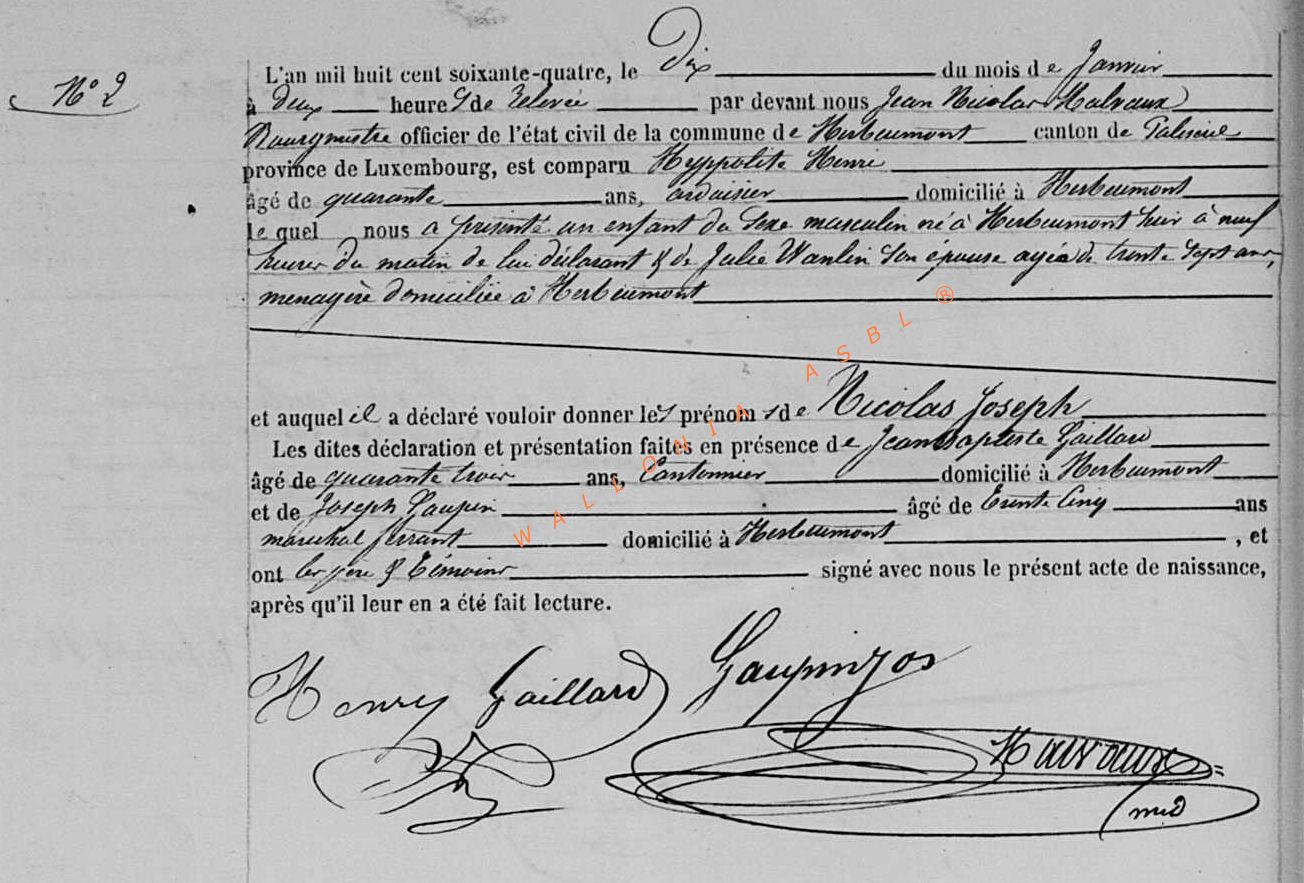 N° 2
L'an mil huit cent soixante-quatre, le Dix du mois de Janvier
à deux heures de relevée par devant nous Jean Nicolas Malvaux
Bourgmestre officier de l'état civil de la commune de Herbeumont canton de Paliseul
province de Luxembourg, est comparu Hyppolite Henri
âgé de quarante ans, ardoisier domicilié à Herbeumont
le quel nous a présenté un enfant du sexe masculin né à Herbeumont hier à neuf
heures du matin de lui déclarant & de Julie Wanlin son épouse agée de trente sept ans,
menagère domiciliée à Herbeumont
et auquel il a déclaré vouloir donner les prénoms de Nicolas Joseph
Les dites déclaration et présentation faites en présence de Jean Baptiste Gaillard
âgé de quarante trois ans, Cantonnier domicilié à Herbeumont
et de Joseph Gaupin âgé de trente cinq ans
maréchal ferrant domicilié à Herbeumont, et
ont les père & témoins signé avec nous le présent acte de naissance,
après qu'il leur en a été fait lecture.
Henry Gaillard Gaupin jos
Malvaux
WALLONIA ASBL ®